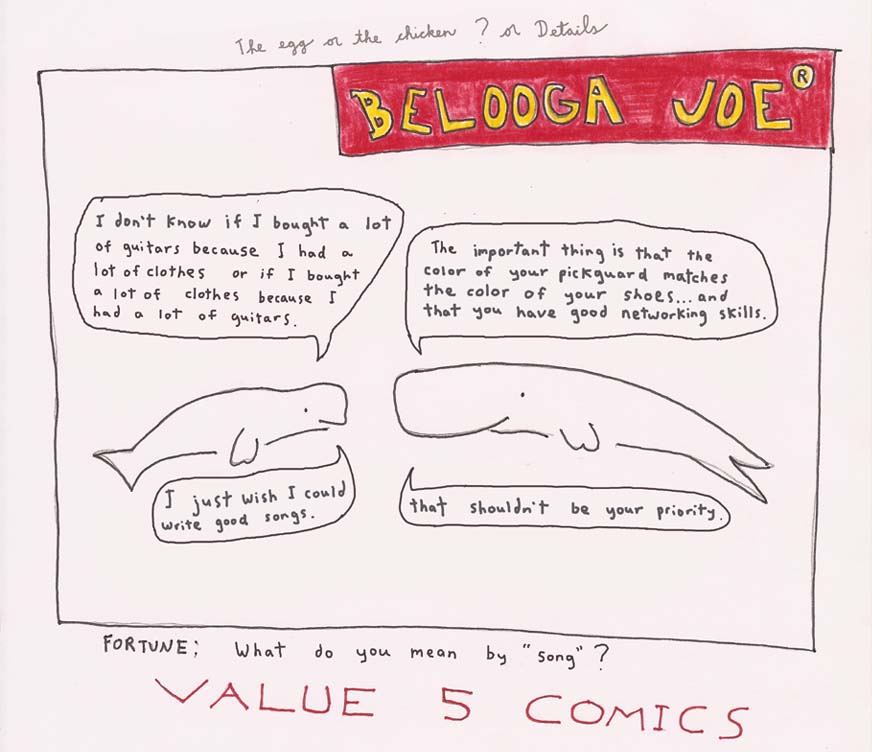 The egg or the chicken ? or Details
BELOOGA JOE®
I don't know if I bought a lot
of guitars because I had a
lot of clothes or if I bought
a lot of clothes because I
had a lot of guitars.
The important thing is that the
color of your pickguard matches
the color of your shoes...and
that you have good networking skills.
I just wish I could
write good songs.
that shouldn't be your priority.
FORTUNE; What do you mean by "song"?
VALUE 5 COMICS